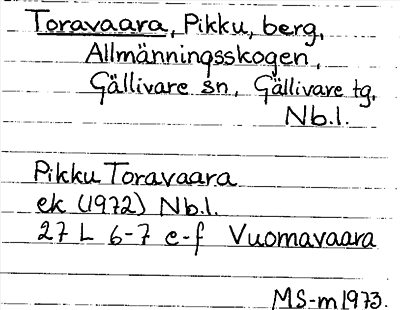 Toravaara, Pikku, berg,
Allmänningsskogen,
Gällivare sn, Gällivare tg,
Nb.l.
Pikku Toravaara
ek (1972) Nb.l.
27 L 6-7 e-f Vuomavaara
MS-m 1973.